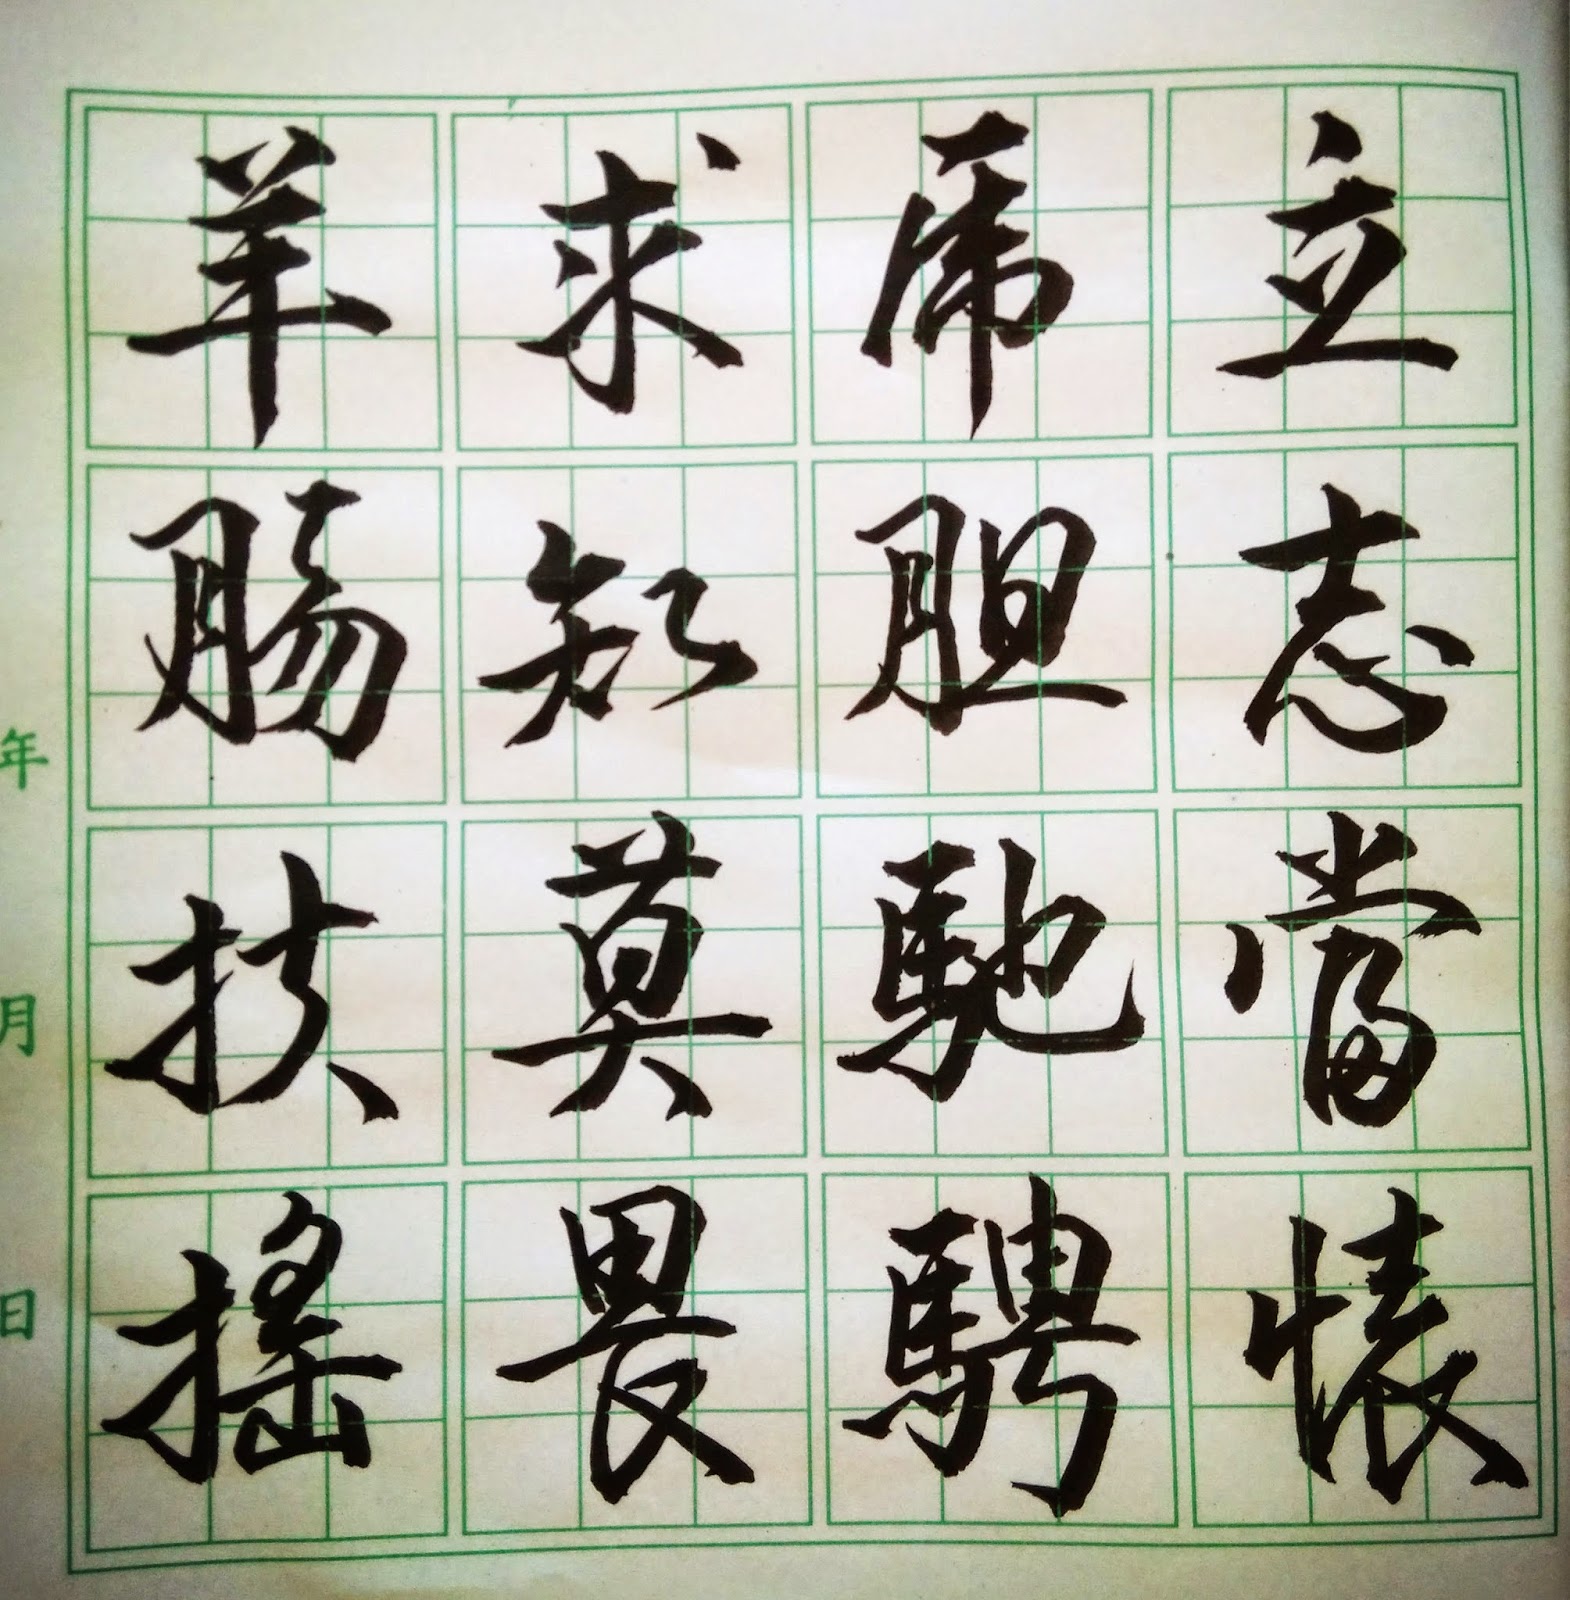 立志當懷
虎胆馳騁
求知莫畏
羊肠扶搖
年 月 日